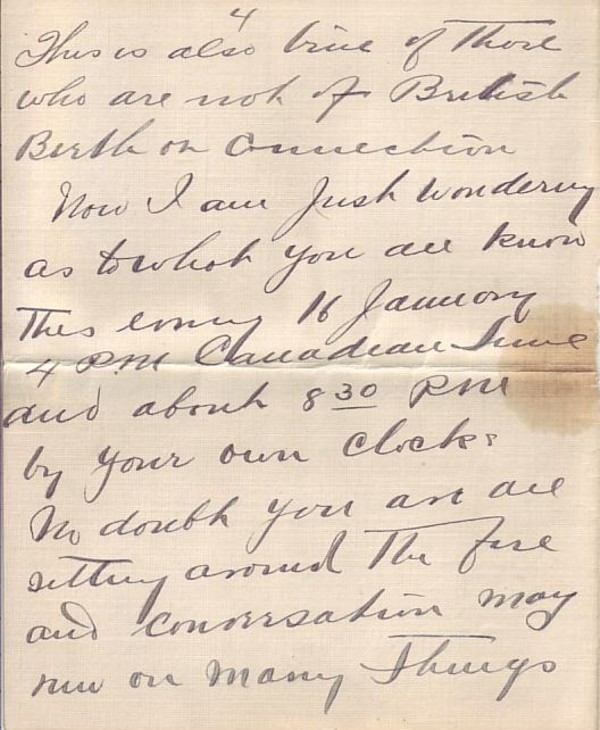 4
This is also true of those
who are not of British
Birth or Connection
Now I am Just Wondering
as to what you all know
This coming 16 January
4 PM Canadian Time
and about 8 30 PM
by your own clocks
No doubt you are all
sitting around The fire
and conversation may
run on Many Things